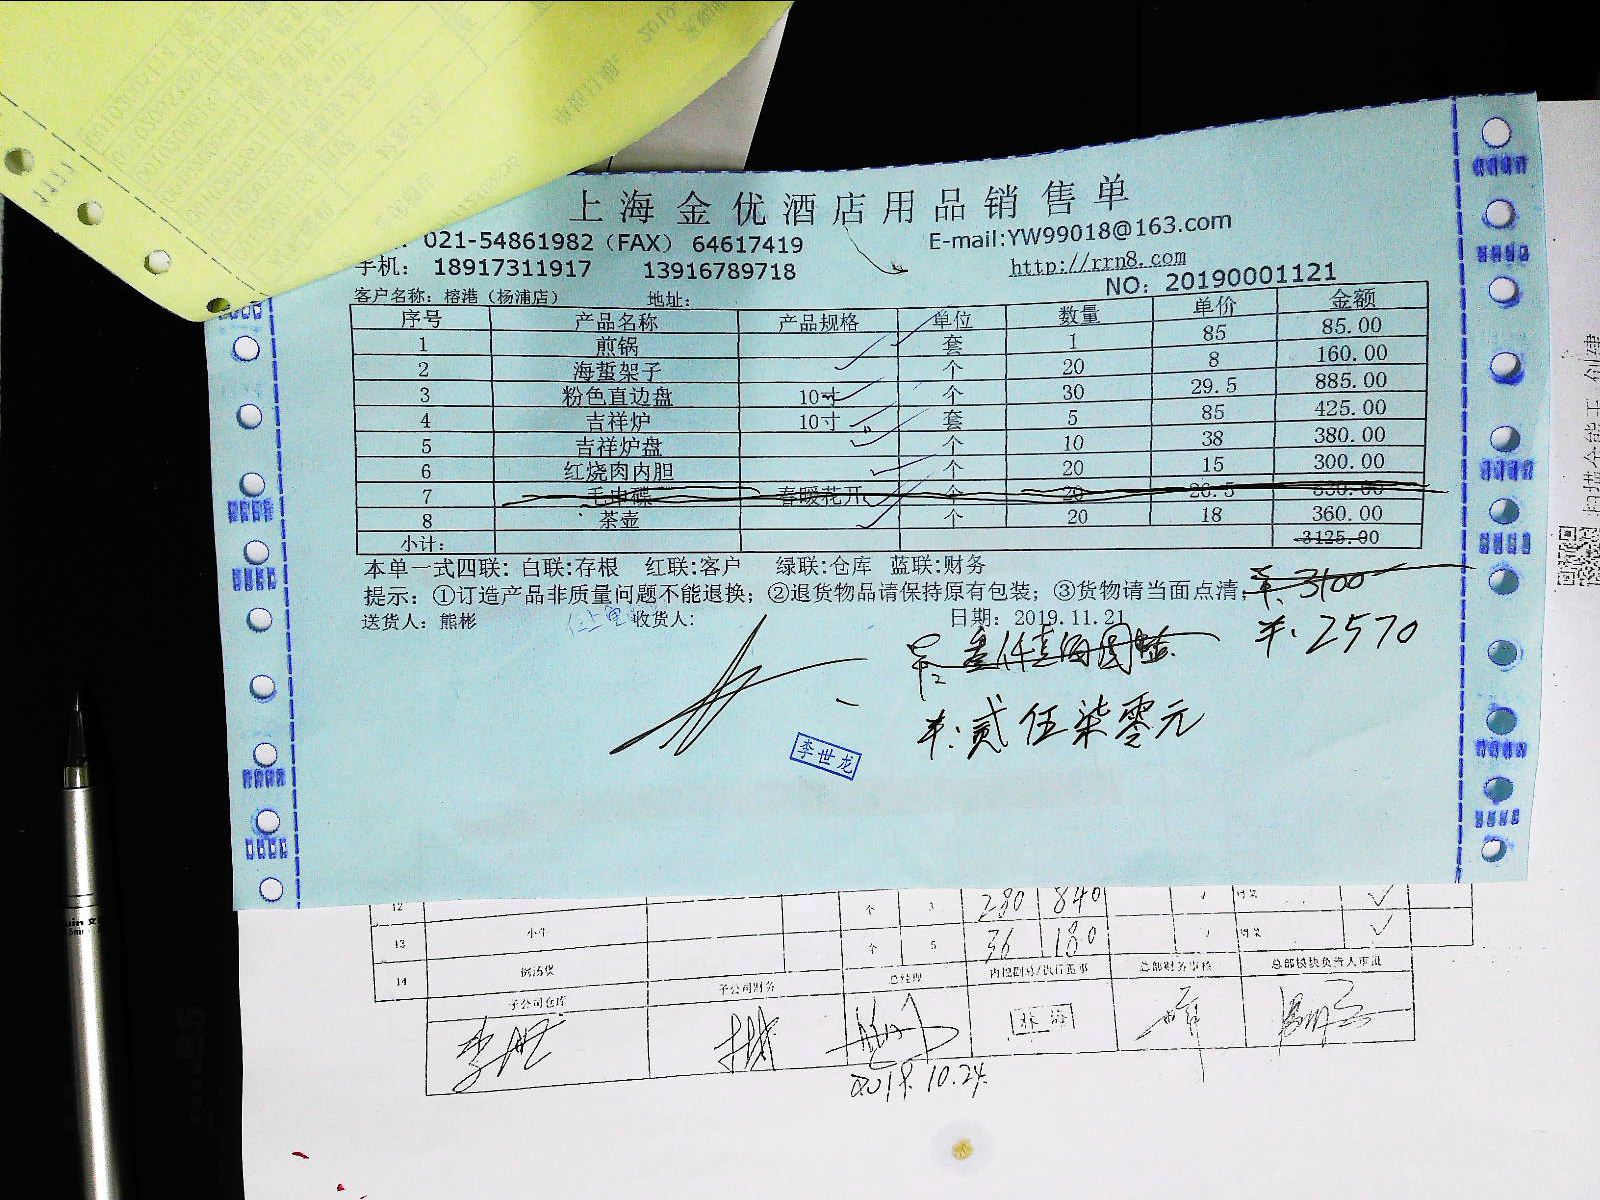 上海金优酒店用品销售单
021-54861982（FAX） 64617419 E-mail:YW99018@163.com
手机： 18917311917 13916789718 http://rrn8.com
NO: 20190001121
客户名称：榕港（杨浦店） 地址：
序号 产品名称 产品规格 单位 数量 单价 金额
1 煎锅 套 1 85 85.00
2 海蜇架子 个 20 8 160.00
3 粉色直边盘 10寸 个 30 29.5 885.00
4 吉祥炉 10寸 套 5 85 425.00
5 吉祥炉盘 个 10 38 380.00
6 红烧肉内胆 个 20 15 300.00
7 春暖花开 个 20 26.5 530.00
8 茶壶 个 20 18 360.00
小计： 3125.00
本单一式四联：白联:存根 红联:客户 绿联:仓库 蓝联:财务
提示：①订造产品非质量问题不能退换；②退货物品请保持原有包装；③货物请当面点清；
¥：3100
送货人：熊彬 收货人： 日期：2019.11.21
¥：2570
¥：贰伍柒零元
李世龙
12 个 3 280 840
13 小牛 个 5 36 180
14
子公司仓库 子公司财务 总经理 总部财务审核 总部模块负责人审批
2019.10.24